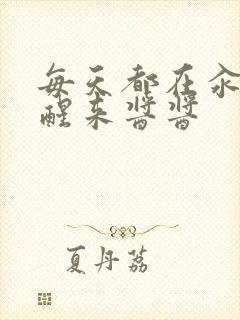 每天都在汆
醒来酱酱
夏丹荔